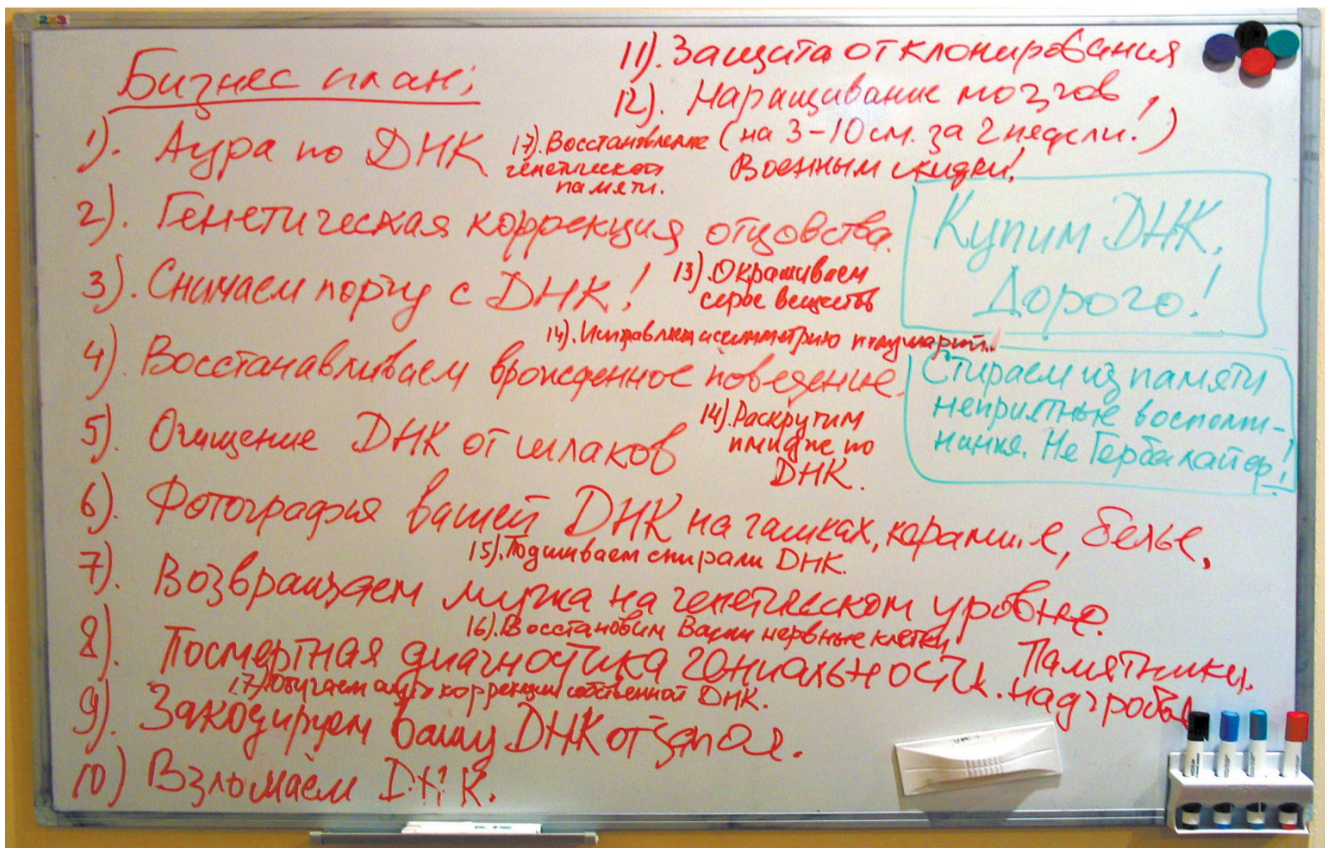 Бизнес план:
1). Аура по ДНК
2). Генетическая коррекция отцовства.
3). Снимаем порчу с ДНК!
4). Восстанавливаем врожденное поведение.
5). Очищение ДНК от шлаков
6). Фотография вашей ДНК на чашках, карамше, белье,
7). Возвращаем мужа на генетическом уровне.
8). Посмертная диагностика гениальности. Памятники.
надгробья
9). Закодируем вашу ДНК от запоя.
10) Взломаем ДНК.
11). Защита от клонирования
12). Наращивание мозгов,
(на 3-10 см. за 2 недели!)
Военным скидки!
13). Окрашиваем
серое вещество
14). Исправляем асимметрию полушарий.
14). Раскрутим
имидж по
ДНК.
15). Подшиваем спирали ДНК.
16). Восстановим Ваши нервные клетки
17) Обучаем коррекции собственной ДНК.
17). Восстановление
генетической
памяти.
Купим ДНК.
Дорого!
Стираем из памяти
неприятные воспоми-
нания. Не Гербалайф!